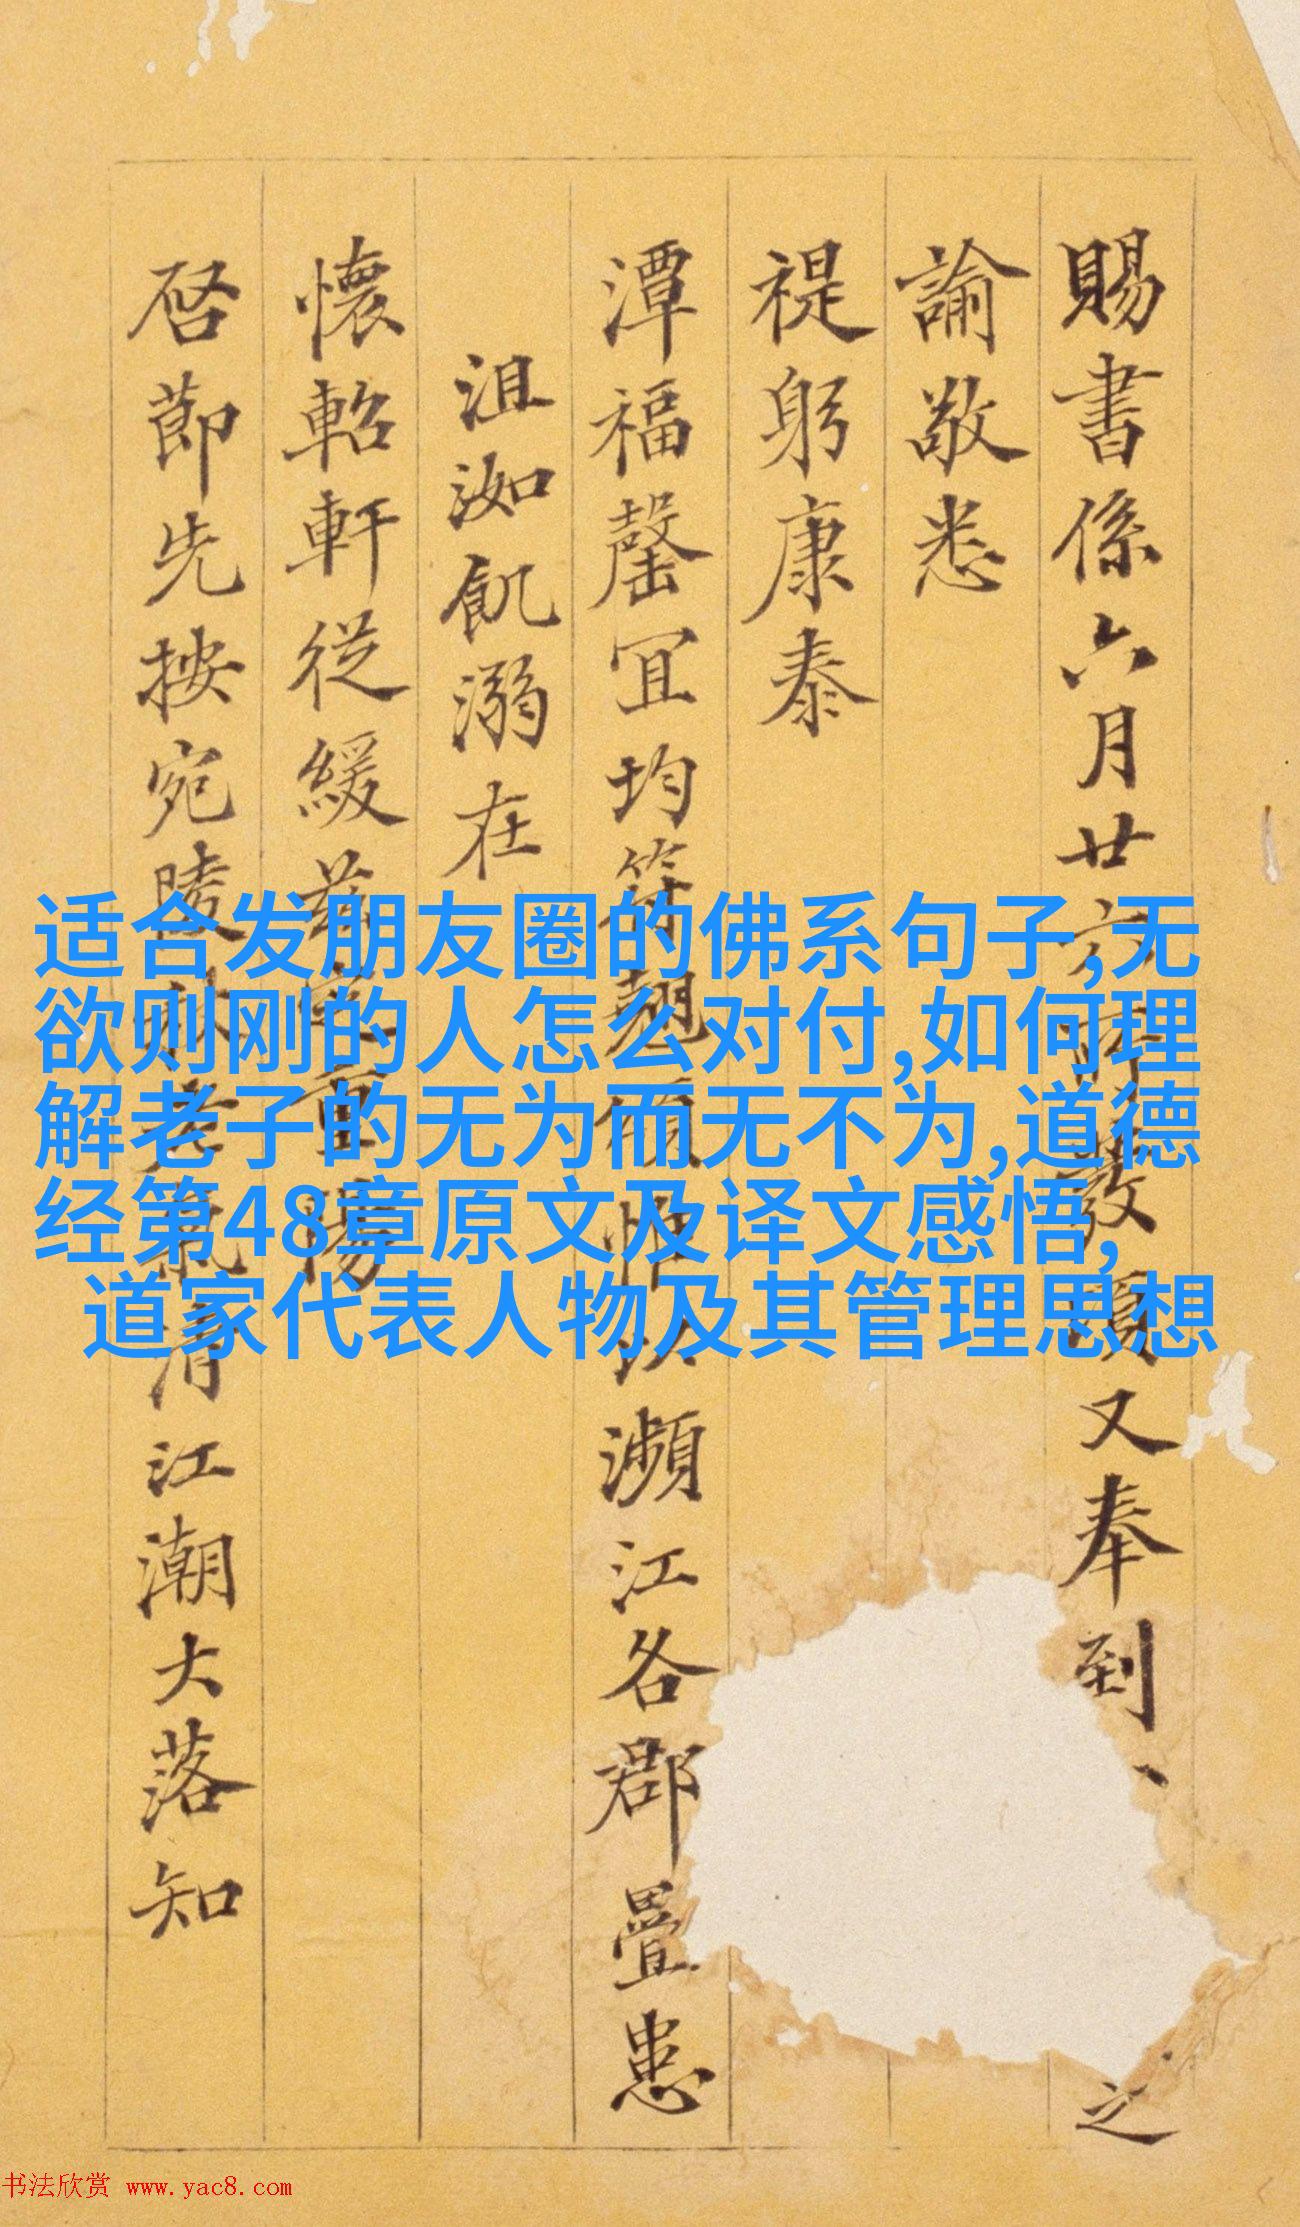 賜書係六月廿六
又奉到
之
諭敬悉
禔躬康泰
潭福罄宜均符
瀕江各郡疊患
沮洳飢溺在
懷軺軒從緩
启節先按宛陵
清江潮大落知
适合发朋友圈的佛系句子,无
欲则刚的人怎么对付,如何理
解老子的无为而无不为,道德
经第48章原文及译文感悟,
道家代表人物及其管理思想
书法欣赏 www.yac8.com